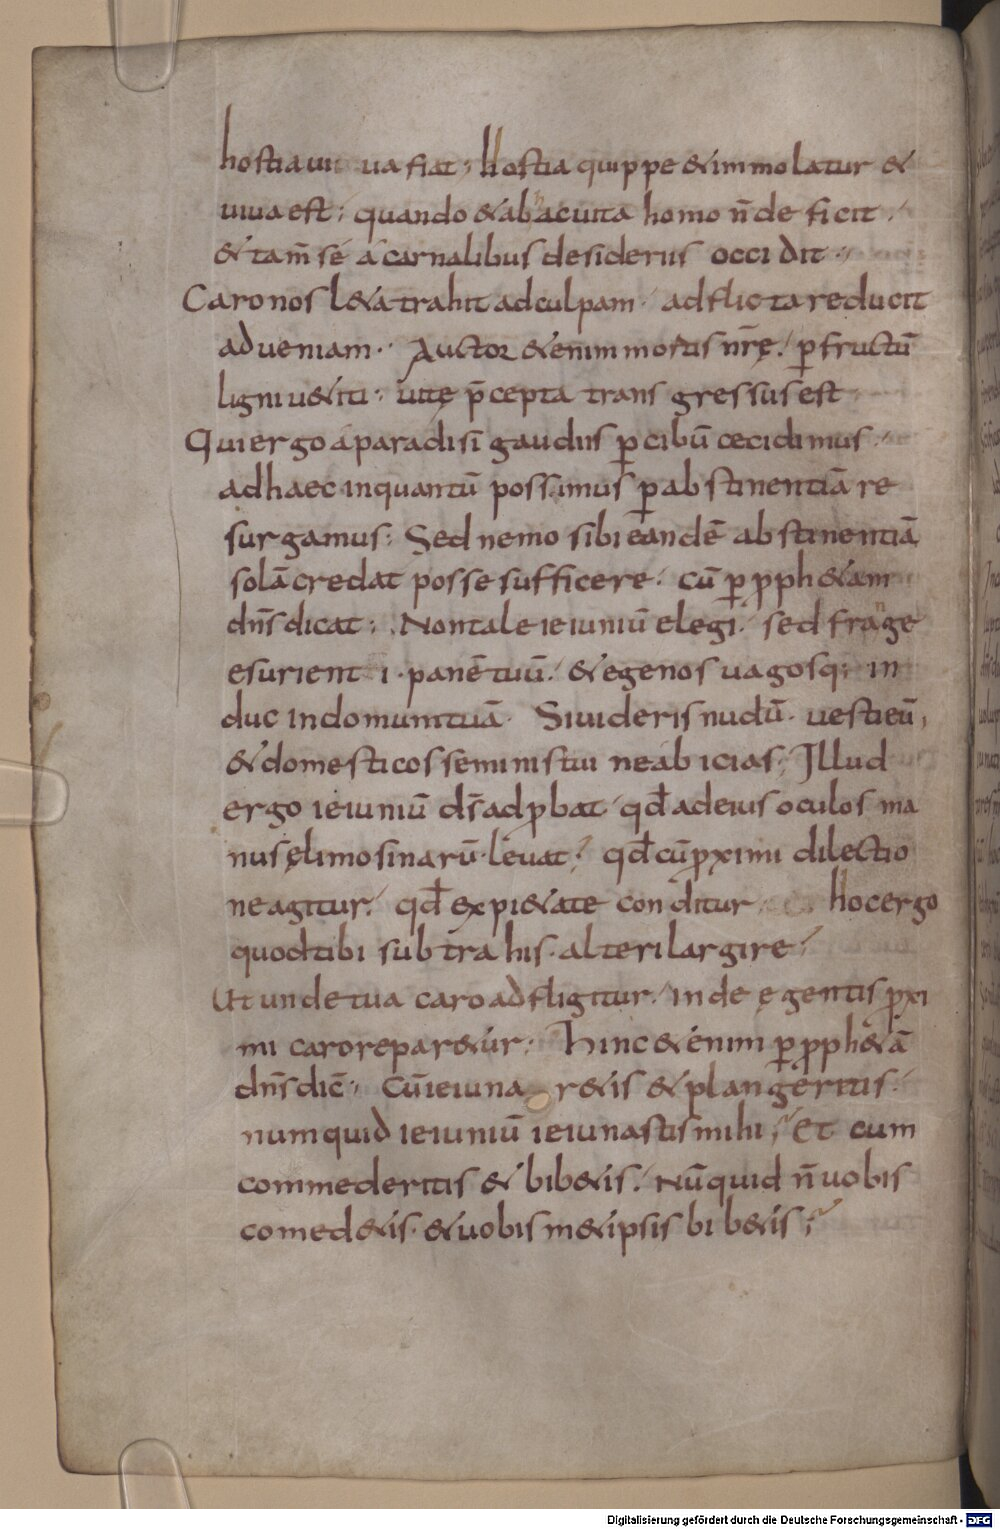 hostia ui ua fiat; hostia quippe & immolatur &
uiua est; quando & ab hac uita homo n̄ deficit.
& tam̄ se a carnalibus desideriis occidit.
Caro nos l&a trahit ad culpam. adflicta reducit
ad ueniam. Auctor & enim mortis nr̄ę. ꝑ fructū
ligni u&iti. uitę p̄cepta transgressus est
Qui ergo a paradisi gaudiis ꝑ cibū cecidimus.
ad haec inquantū possimus ꝑ abstinentiā re
surgamus: Sed nemo sibi eandē abstinentiā
solā credat posse sufficere. cū ꝑ ꝓph&am
dn̄s dicat: Non tale ieiuniū elegi. sed frange
esurient i panē tuū. & egenos uagosq; in
duc in domum tuā. Si uideris nudū. uesti eū,
& domesticos seminis tui ne abicias; Illud
ergo ieiuniū ds̄ adꝓbat. qđ ad eius oculos ma
nus ęlimosinarū leuat; qđ cū ꝓximi dilectio
ne agitur. qđ ex pi&ate conditur hoc ergo
quod tibi subtrahis. alteri largire.
Ut unde tua caro adfligitur. inde egentis ꝓxi
mi caro repar&ur. Hinc & enim ꝑ ꝓph&ā
dn̄s dic̄. Cū ieiuna r&is & plangeritis.
numquid ieiuniū ieiunastis mihi; Et cum
commederitis & bib&is. Nūquid n̄ uobis
comed&is. & uobis m&ipsis bib&is;
Digitalisierung gefördert durch die Deutsche Forschungsgemeinschaft - DFG